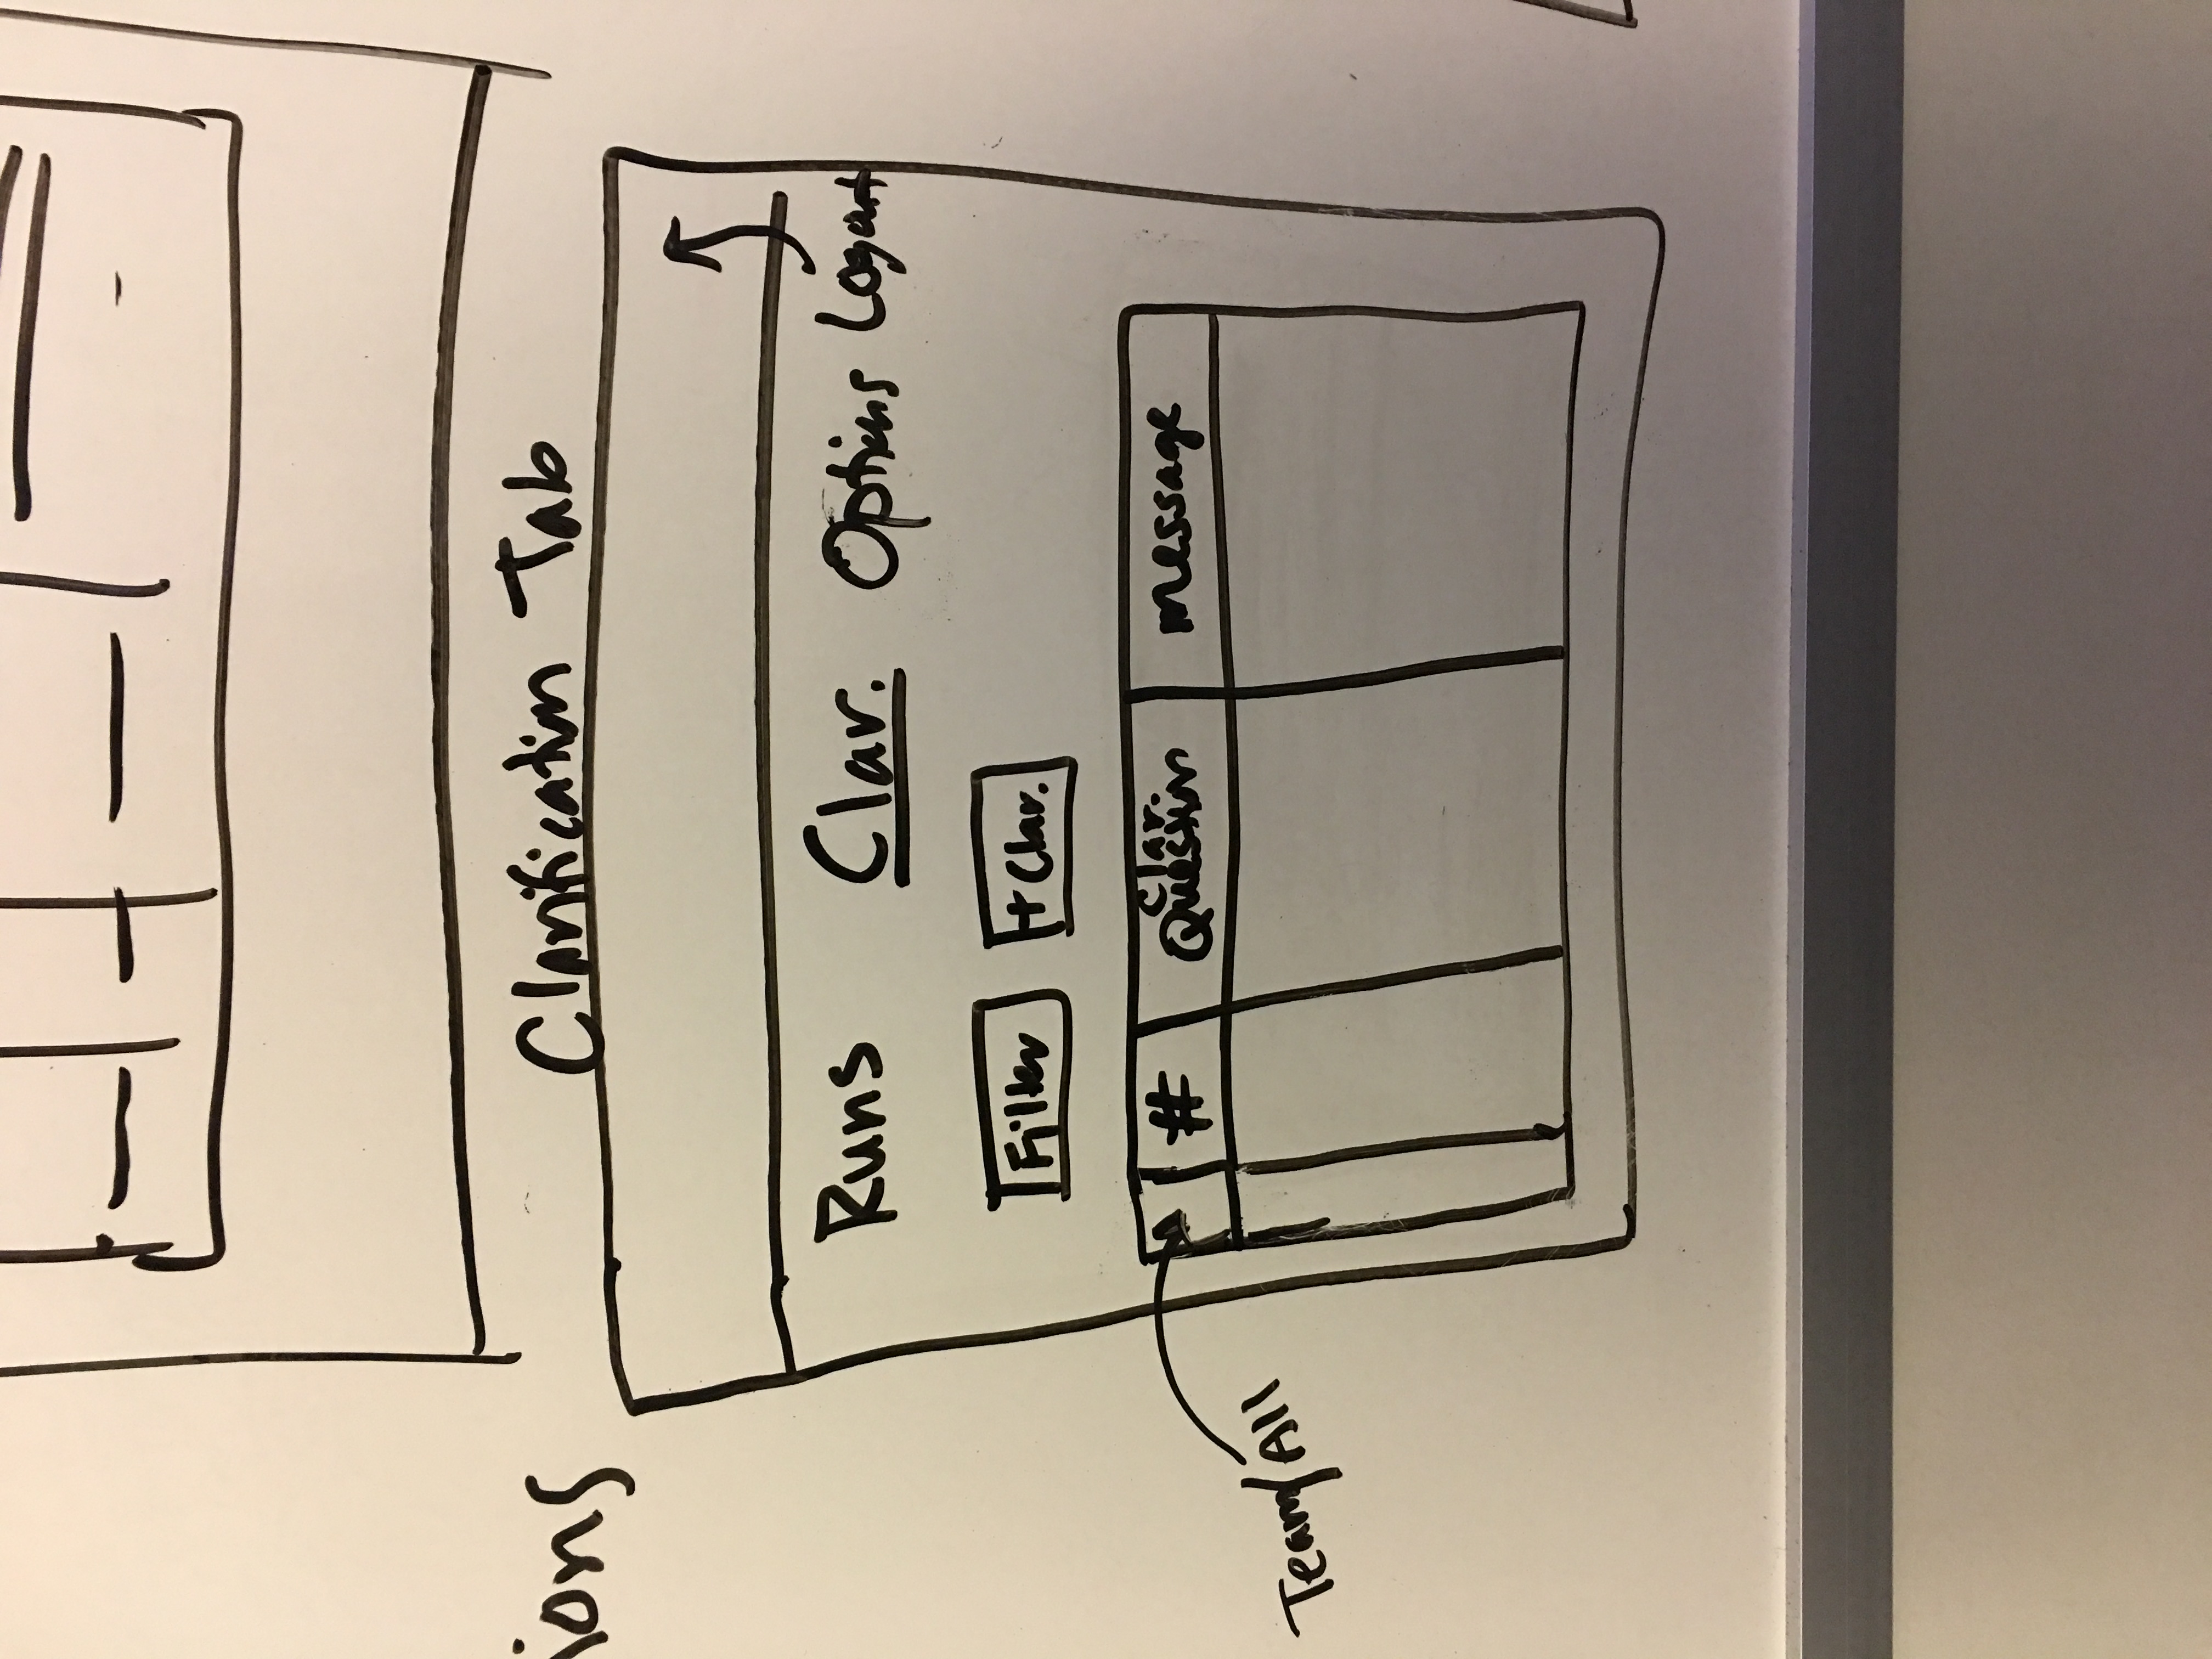 ions
Clarification Tab
Runs Clar. Options Logout
Filter +Clar.
# Clar. Question message
Team/All